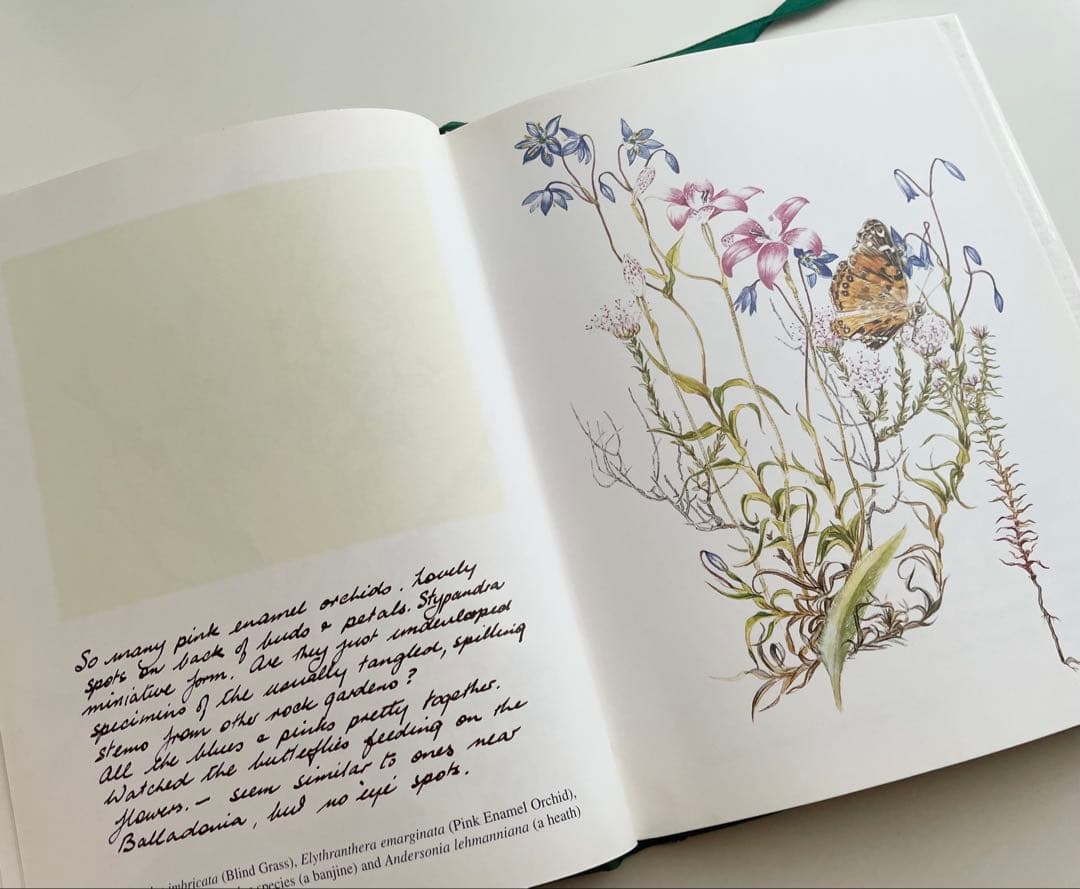 So many pink enamel orchids. Lovely
spots on back of buds & petals. Stypandra
miniative form. Are they just undeveloped
specimins of the usually tangled, spilling
stems from other rock gardens?
All the blues & pinks pretty together.
Watched the butteflies feeding on the
flowers. — seem similar to ones near
Balladonia, but no 'eye' spots.
imbricata (Blind Grass), Elythranthera emarginata (Pink Enamel Orchid),
species (a banjine) and Andersonia lehmanniana (a heath)